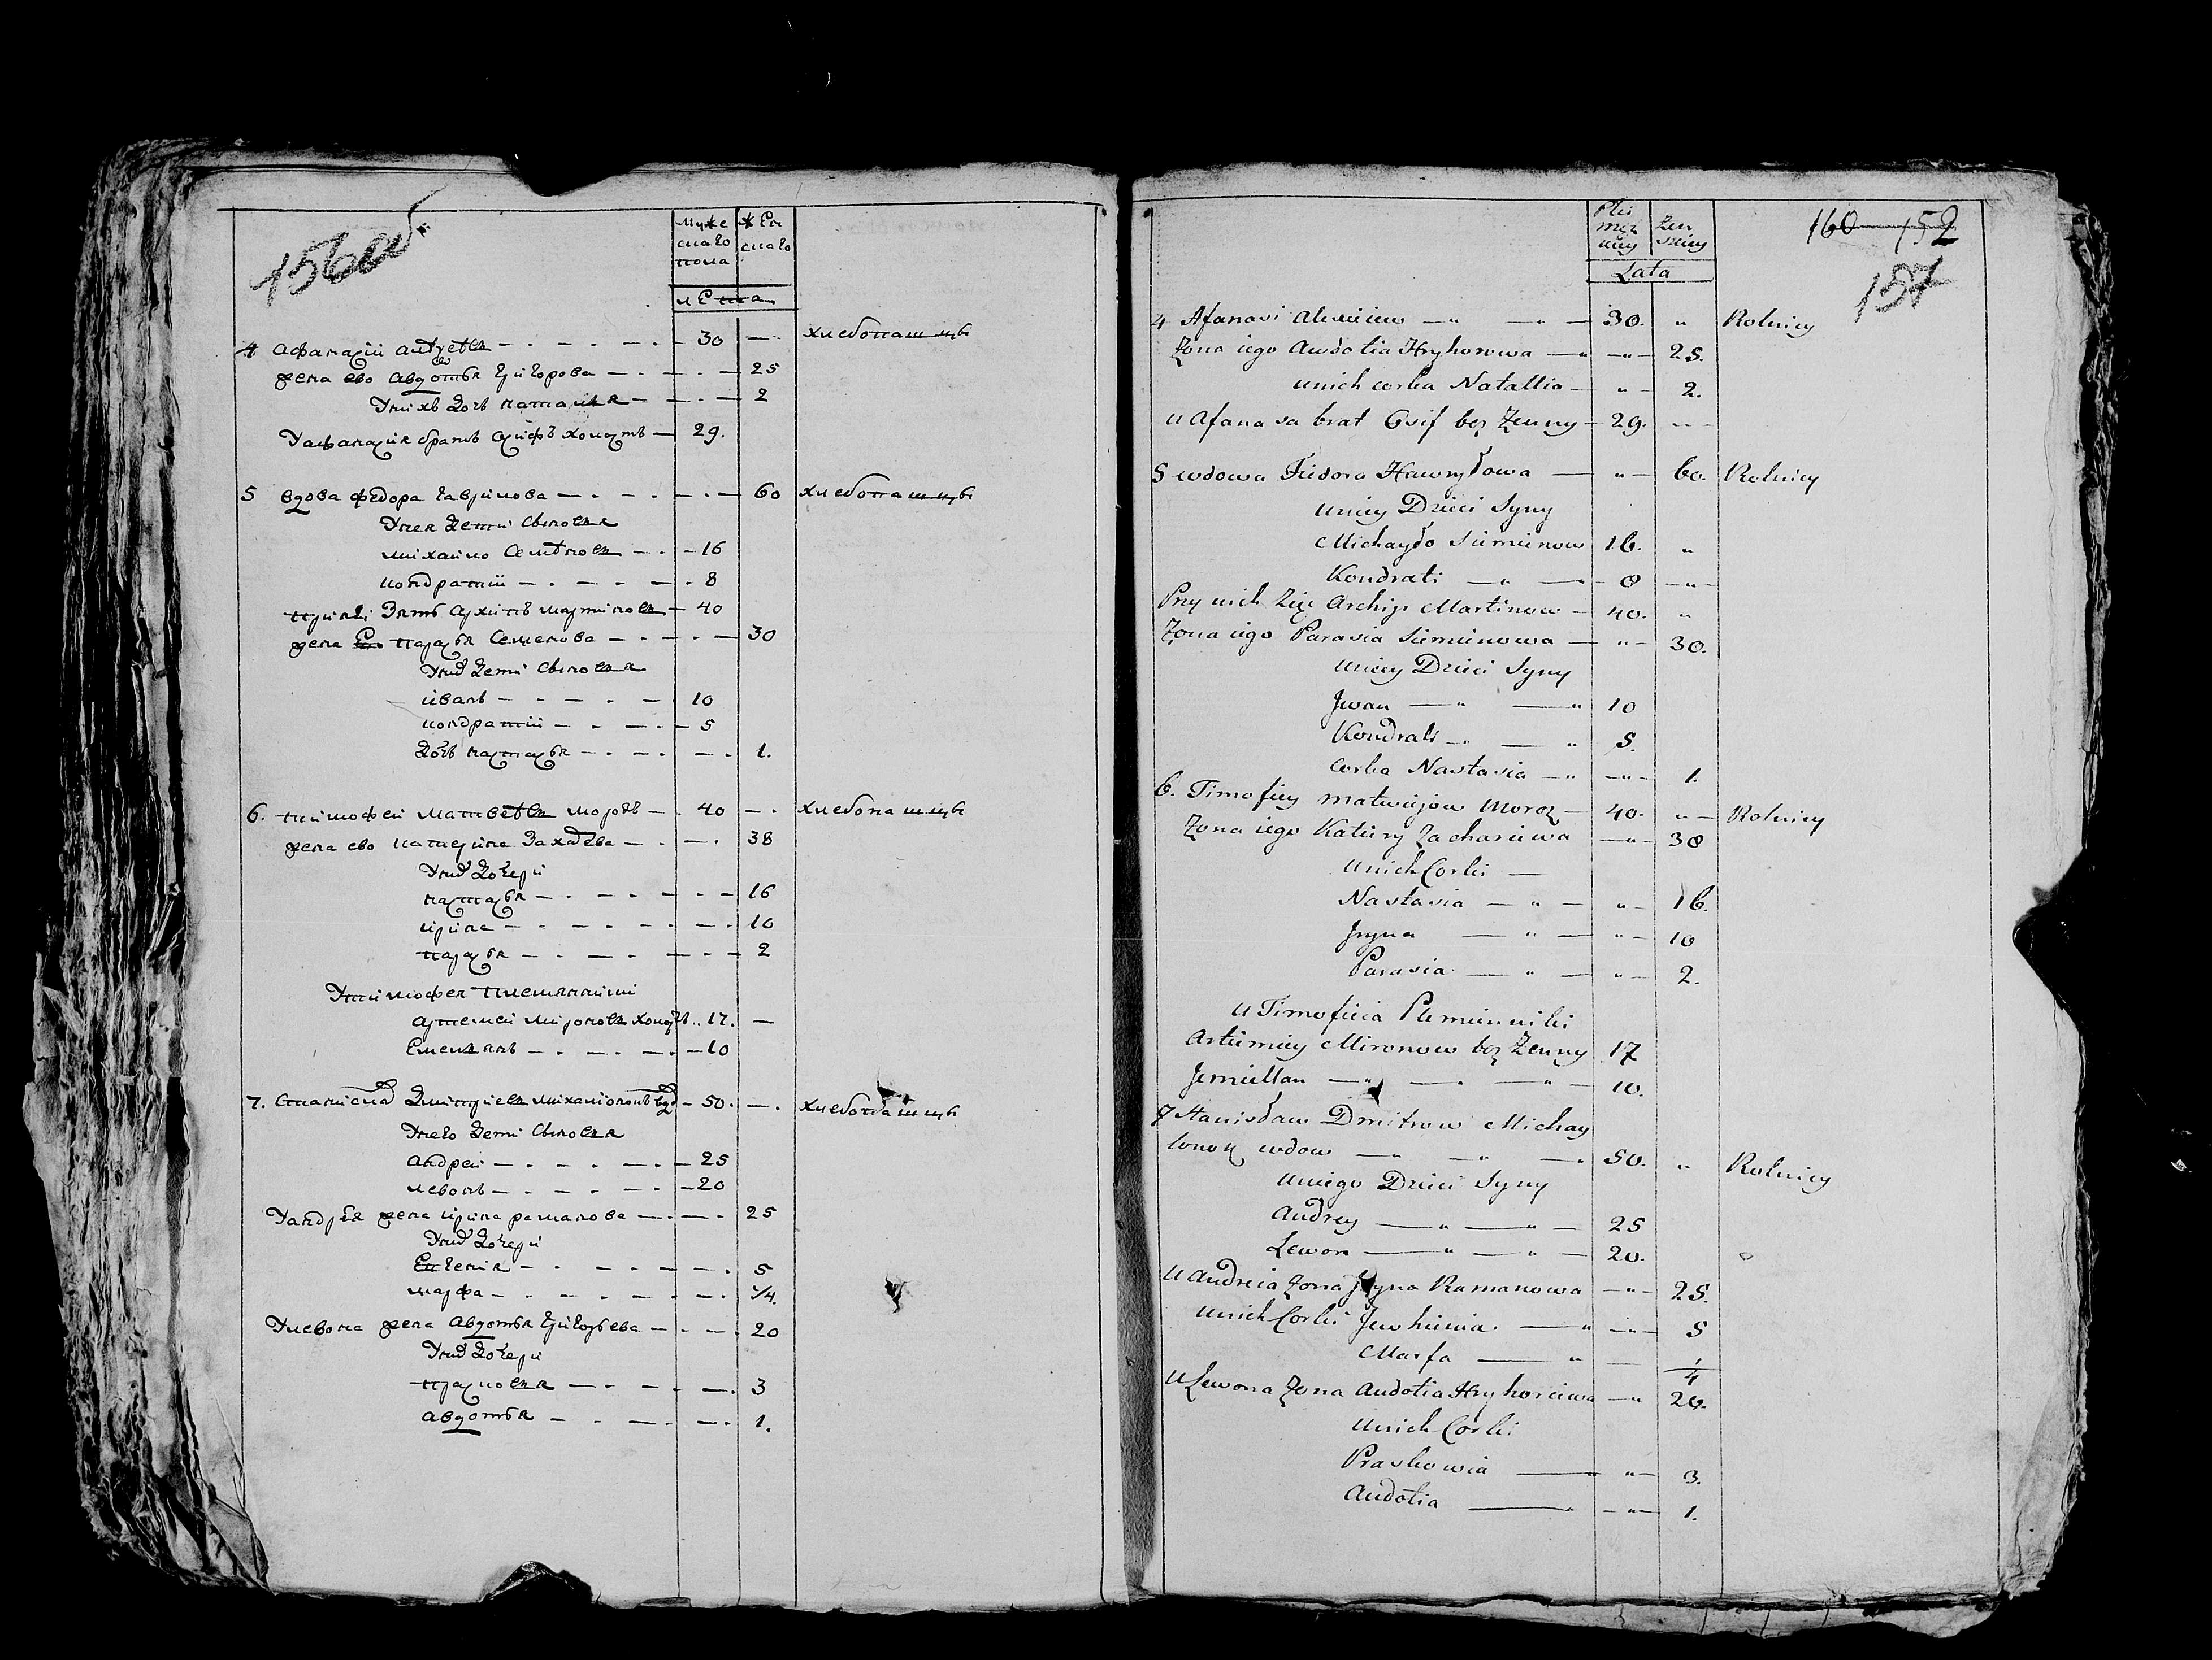 156 об
Муже
скаго
пола
Жен
скаго
лета
4 Афанасiй Алѣксѣевъ — 30 — хлебопашцы
жена ево Авдотья Григорова — 25
У них дочь Наталья — 2
У Афанасия братъ Осифъ холостъ — 29.
5 вдова Федора Гаврилова — 60 хлебопашцы
У нея дети сыновья
Михайло Семѣновъ — 16
Кондратiй — 8
При ней зять Архипъ Мартиновъ — 40
жена Ево Парасья Семенова — 30
У них дети сыновья
Иванъ — 10
Кондратiй — 5
дочь Настасья — 1.
6. Тимофей Матвеѣвъ Морозъ — 40 — хлебопашцы
жена ево Катерина Захаѣва — 38
У них дочери
Настасья — 16
Ирина — 10
Парасья — 2
У Тимофея племянники
Артемей Миронов холостъ 17. —
Емельянъ — 10
7. Станиславъ Дмитриевъ Михалионокъ вдов — 50. — хлебопашцы
У него дети сыновья
Андрей — 25
Левонъ — 20
У Андрея жена Ирина Раманова — 25
У них дочери
Евгения — 5
Марфа — 1/4.
У Левона жена Авдотья Григорьева — 20
У них дочери
Прасковья — 3
Авдотья — 1.
Płci
męz
kiey
żen
skiey
Lata
160 152
157
4 Afanasi Alexieiew — 30. " Rolnicy
Zona iego Awdotia Hryhorowa — " — 25.
unich corka Natallia — " — 2.
u Afanasa brat Osif bez Zenny — 29. — " —
5 wdowa Fiedora Hawryłowa — " — 60. Rolnicy
uniey Dzieci Syny
Michayło Siemienow 16. "
Kondrati — " — 8 — " —
Przy nich Zięc Archip Martinow — 40. "
Zona iego Parasia Siemienowa — " — 30.
uniey Dzieci Syny
Jwan — " — " 10
Kondrati — " — " 5.
corka Nastasia — " — " — 1.
6. Timofiey Matwiejow Moroz — 40. " — Rolnicy
Zona iego Katiery Zachariewa — " — 38
unich Corki —
Nastasia — " — " — 16.
Jryna — " — " — 10
Parasia — " — " — 2.
u Timofieia Plemienniki
Artiemiey Mironow bez Zenny 17
Jemiellan — " — " — " — 10.
7 Stanisław Dmitrow Michay
lonok wdow — " — " — " 50. " Rolnicy
uniego Dzieci Syny
Andrey — " — " — 25
Lewon — " — " — 20.
u Andreia Zona Jryna Ramanowa — " — 25.
unich Corki Jewhienia — " — " — 5
Marfa — " — 1/4
u Lewona Zona Audotia Hryhoreiwa — " 20.
unich Corki
Praskowia — " — 3.
Audotia — " — 1.